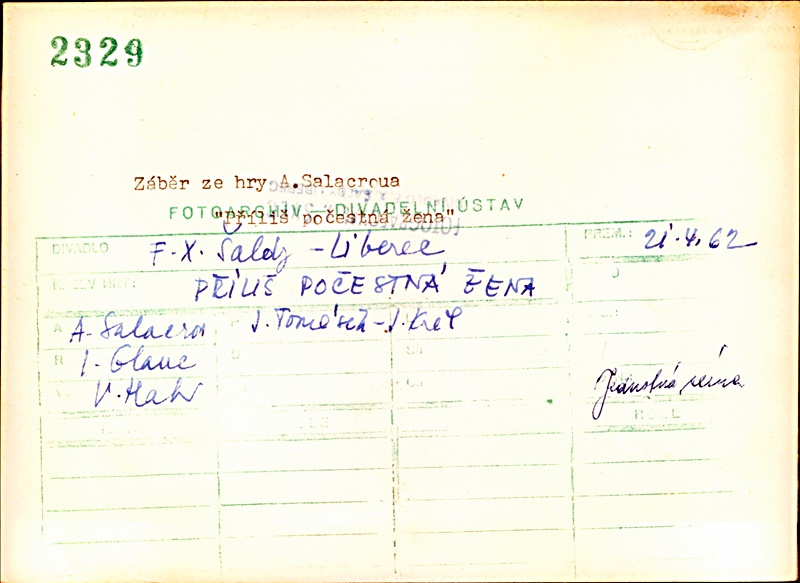 2329
Záběr ze hry A.Salacroua
FOTOARCHIV — DIVADELNÍ ÚSTAV
"Příliš počestná žena"
DIVADLO F. X. Šaldy - Liberec PREM.: 21.4.62
PŘÍLIŠ POČESTNÁ ŽENA
A. Salacrou J. Tomášek - J. Krel
R I. Glanc
V. Hahr